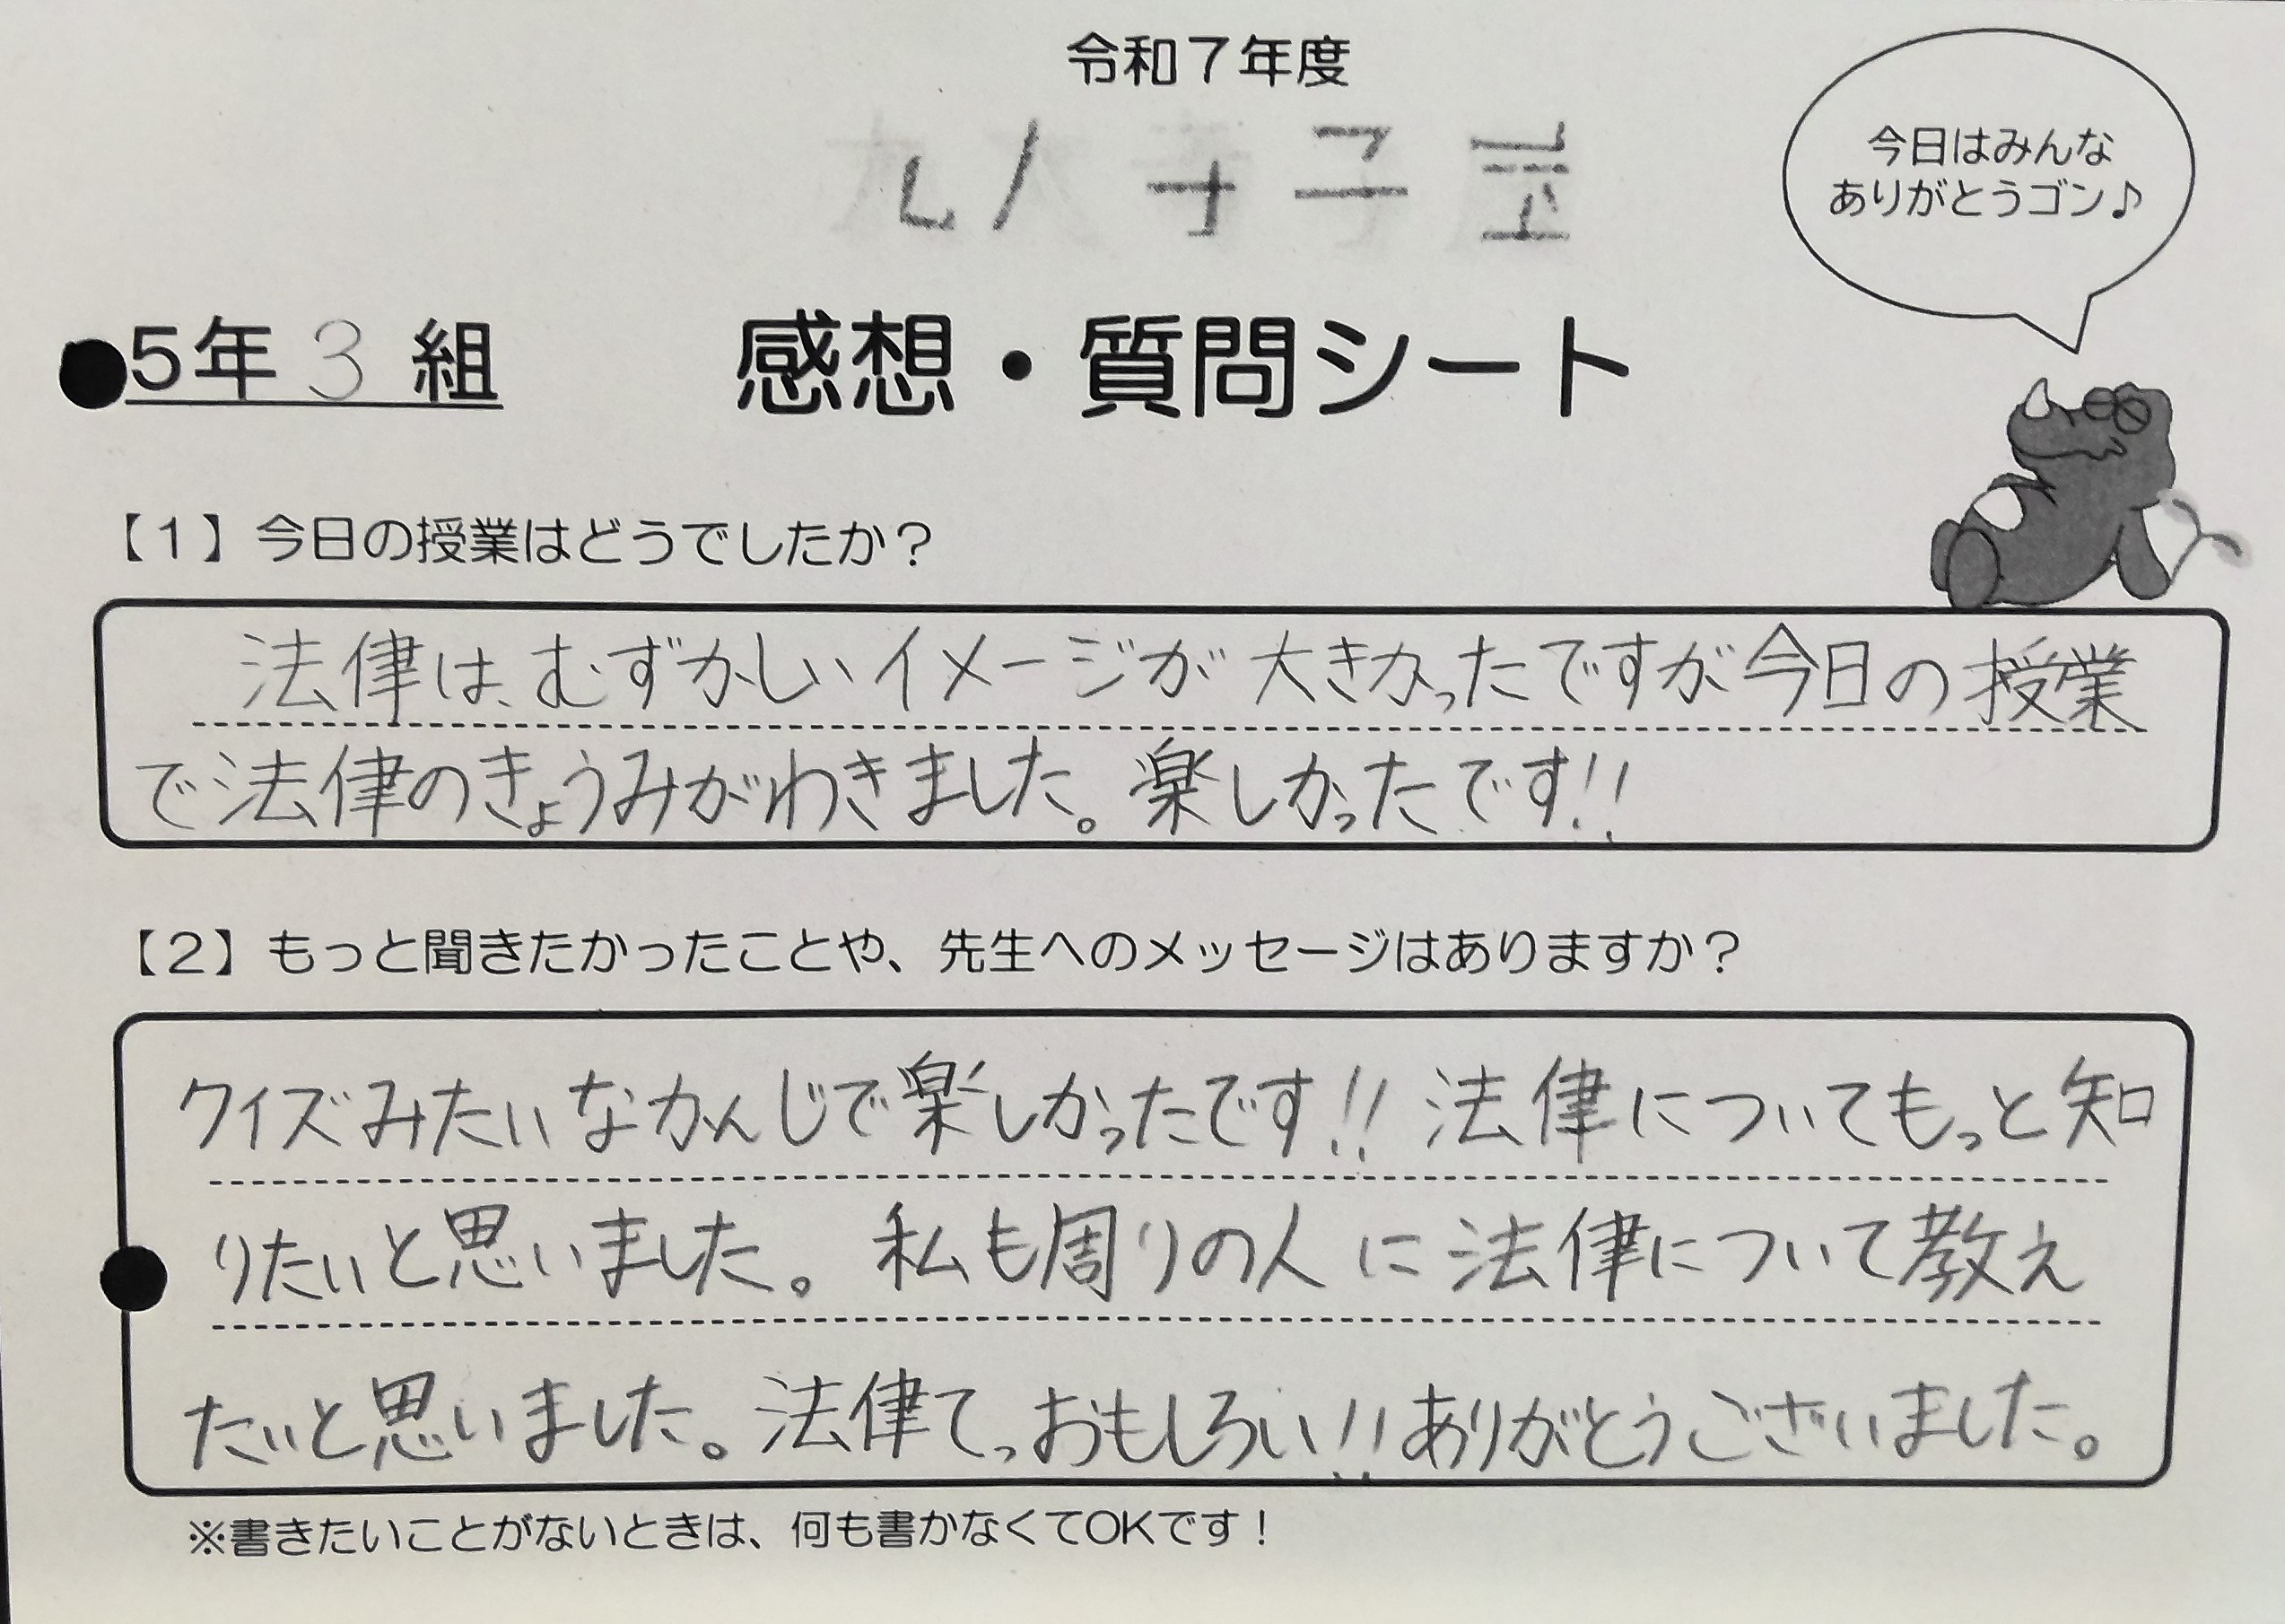 令和７年度
今日はみんな
ありがとうゴン♪
5年 3 組
感想・質問シート
【１】今日の授業はどうでしたか？
法律は、むずかしいイメージが大きかったですが今日の授業
で法律のきょうみがわきました。楽しかったです!!
【２】もっと聞きたかったことや、先生へのメッセージはありますか？
クイズみたいなかんじで楽しかったです!! 法律についてもっと知
りたいと思いました。私も周りの人に法律について教え
たいと思いました。法律てっおもしろい!!ありがとうございました。
※書きたいことがないときは、何も書かなくてOKです！